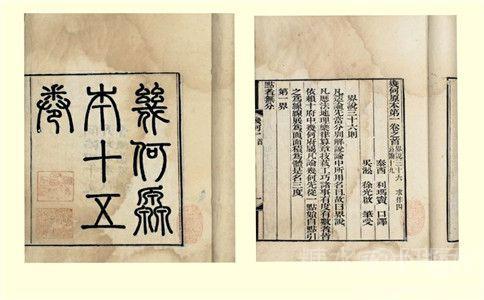 幾何原
本十五
卷
幾何原本第一卷之首 界說三十六 求作四
公論十九
泰西 利瑪竇 口譯
吳淞 徐光啟 筆受
界說三十六則
凡造論先當分別解說論中所用名目故曰界說
凡歷法地理樂律算章技藝工巧諸事有度有數者皆
依賴十府中幾何府屬凡論幾何先從一點始自點引
之為線線展為面面積為體是名三度
第一界
點者無分